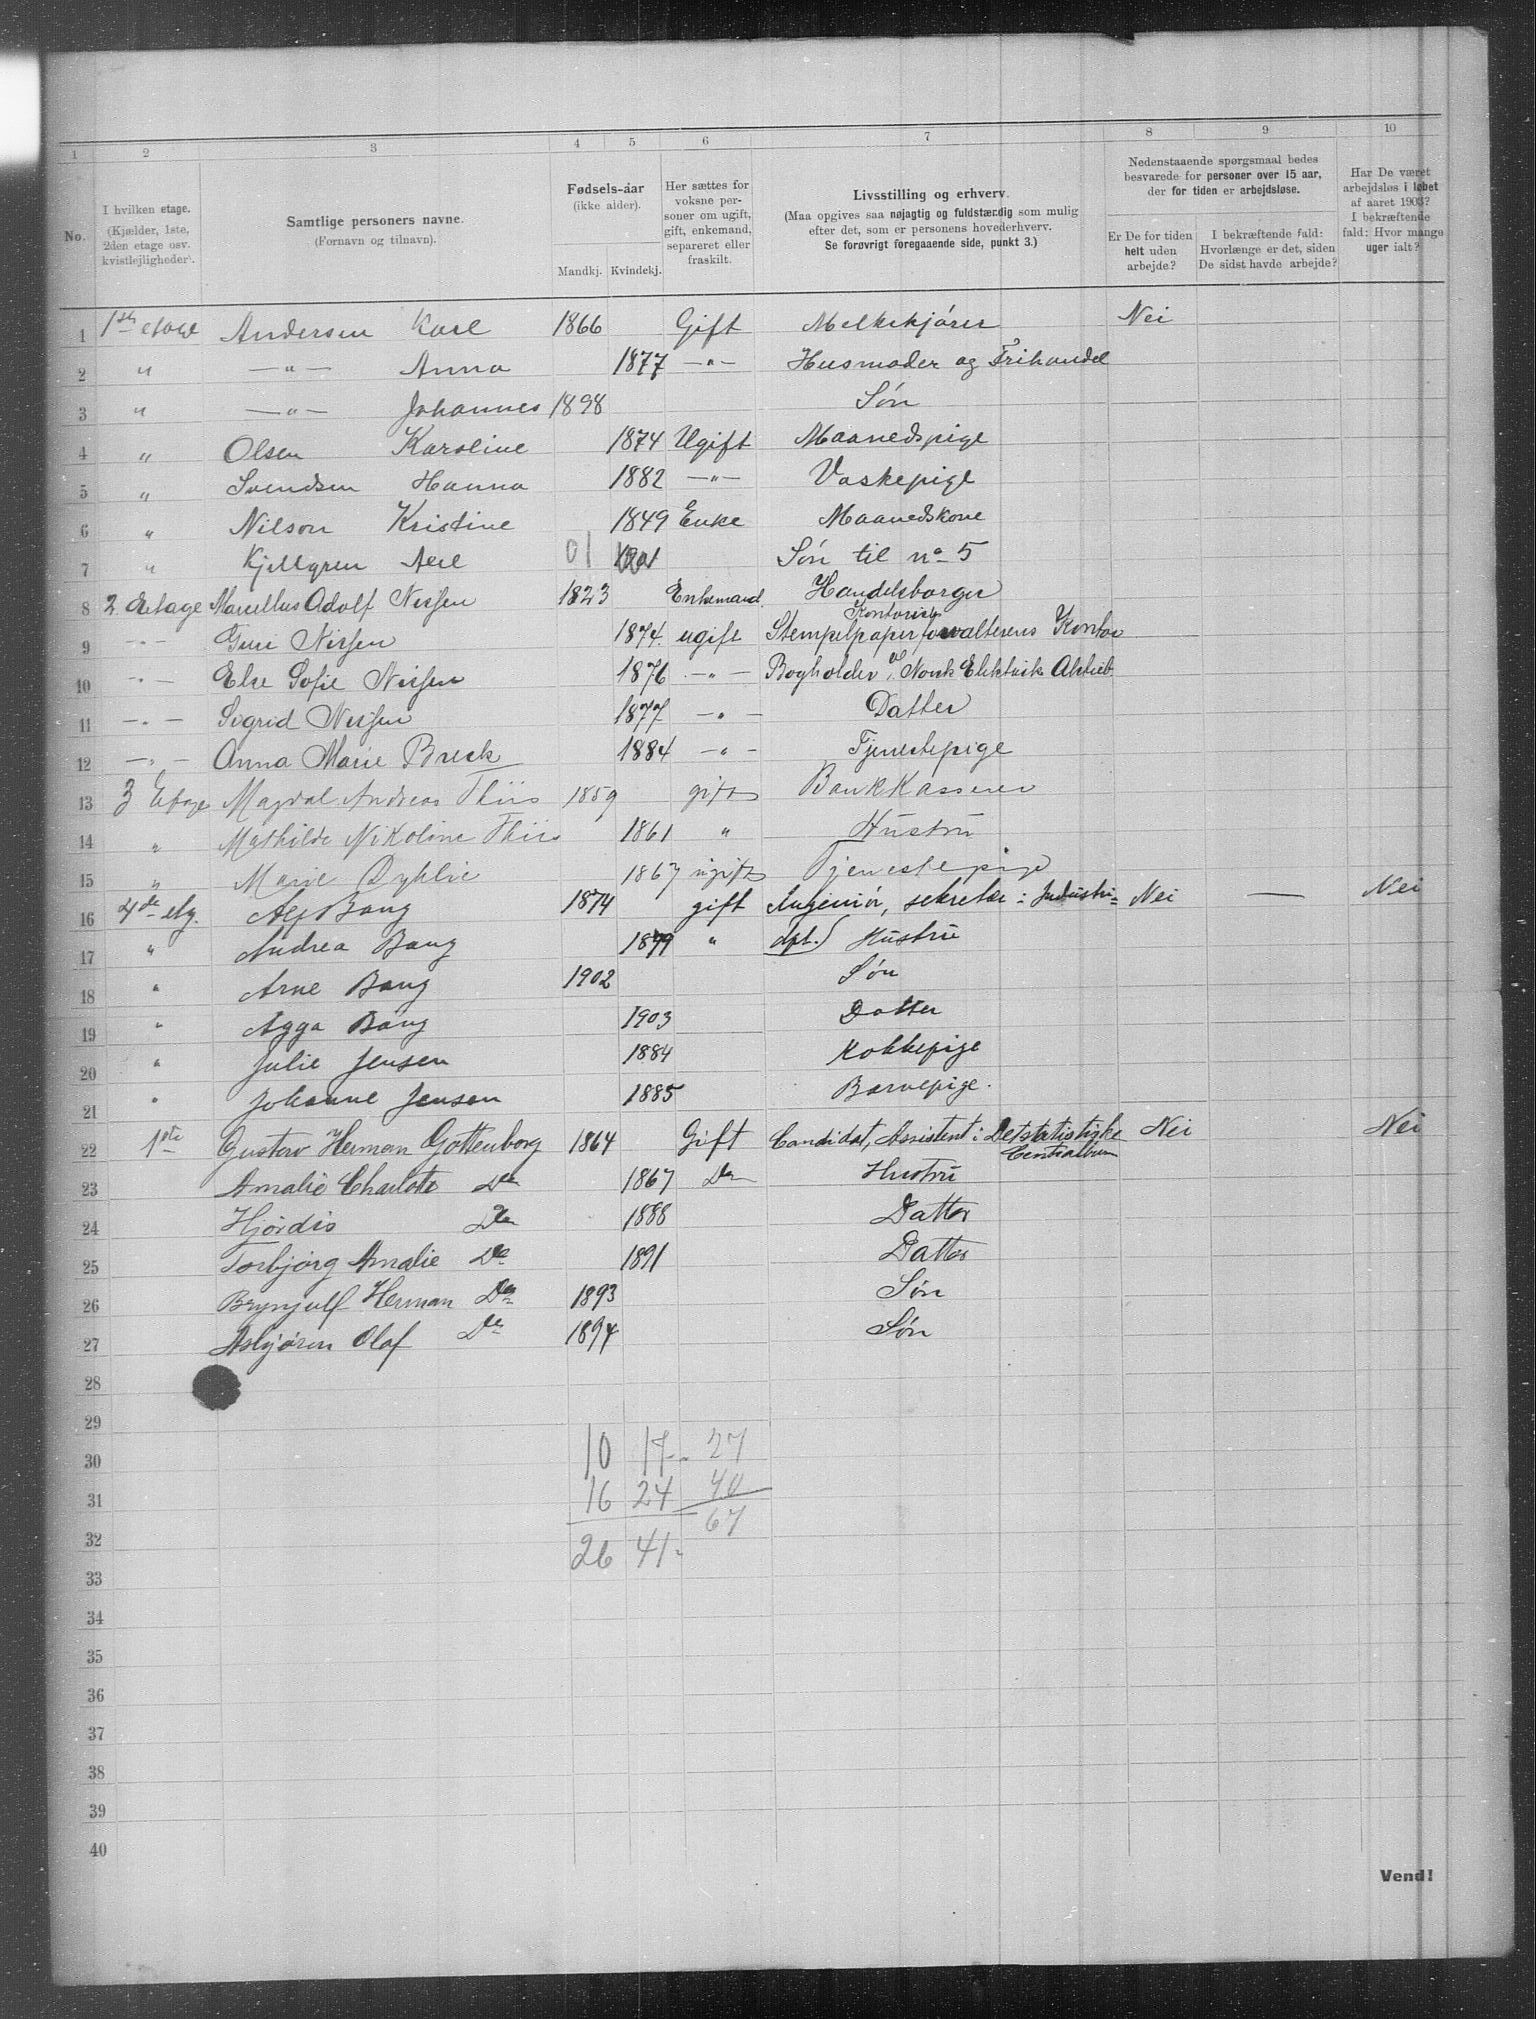 1 2 3 4 5 6 7 8 9 10
No.
I hvilken etage.
(Kjælder, 1ste,
2den etage osv.
kvistlejligheder).
Samtlige personers navne.
(Fornavn og tilnavn).
Fødsels-aar
(ikke alder).
Mandkj. Kvindekj.
Her sættes for
voksne per-
soner om ugift,
gift, enkemand,
separeret eller
fraskilt.
Livsstilling og erhverv.
(Maa opgives saa nøjagtig og fuldstærdig som mulig
efter det, som er personens hovederhverv.
Se forøvrigt foregaaende side, punkt 3.)
Nedenstaaende spørgsmaal bedes
besvarede for personer over 15 aar,
der for tiden er arbejdsløse.
Er De for tiden
helt uden
arbejde?
I bekræftende fald:
Hvorlænge er det, siden
De sidst havde arbejde?
Har De været
arbejdsløs i løbet
af aaret 1903?
I bekræftende
fald: Hvor mange
uger ialt?
1 1ste etage Andersen Karl 1866 Gift Melkekjører Nei
2 " —"— Anna 1877 —"— Husmoder og Frihandel
3 " —"— Johannes 1898 Søn
4 " Olsen Karoline 1874 Ugift Maanedspige
5 " Svendsen Hanna 1882 —"— Vaskepige
6 " Nilson Kristine 1849 Enke Maanedskone
7 " Kjellgren 01 Søn til no 5
8 2 Etage Marcellus Adolf Nissen 1823 Enkemand. Handelsborger
9 —"— Nissen 1874. ugift Stempelpapirforvalterens Kontor
Kontorist
10 —"— Else Sofie Nissen 1876 —"— Bogholder v. Norsk Elektrisk Aktieb.
11 —"— Sigrid Nissen 1877 —"— Datter
12 —"— Anna Marie Breck 1884 —"— Tjenestepige
13 3 Etage Magdal Andreas Thiis 1859 gift Bankkasserer
14 " Mathilde Nikoline Thiis 1861 " Hustru
15 " Marie Dyhlie 1867 ugift Tjenestepige
16 4de etg. Alf Bang 1874 gift Ingeniør, sekretær i Industri= Nei — Nei
17 " Andrea Bang 1879 " dpt.) Hustru
18 " Arne Bang 1902 Søn
19 " Agga Bang 1903 Datter
20 " Julie Jensen 1884 Kokkepige
21 " Johanne Jensen 1885 Barnepige.
22 1ste Gustav Herman Gottenborg 1864 Gift Candidat, Assistent i Det statistiske Nei Nei
Centralbureau
23 Amalie Charlotte Do 1867 Do Hustru
24 Hjördis Do 1888 Datter
25 Torbjørg Amalie Do 1891 Datter
26 Brynjulf Herman Do 1893 Søn
27 Asbjørn Olaf Do 1894 Søn
28
29
30 10 17 - 27
31 16 24 40
32 26 41 - 67
33
34
35
36
37
38
39
40
Vend!